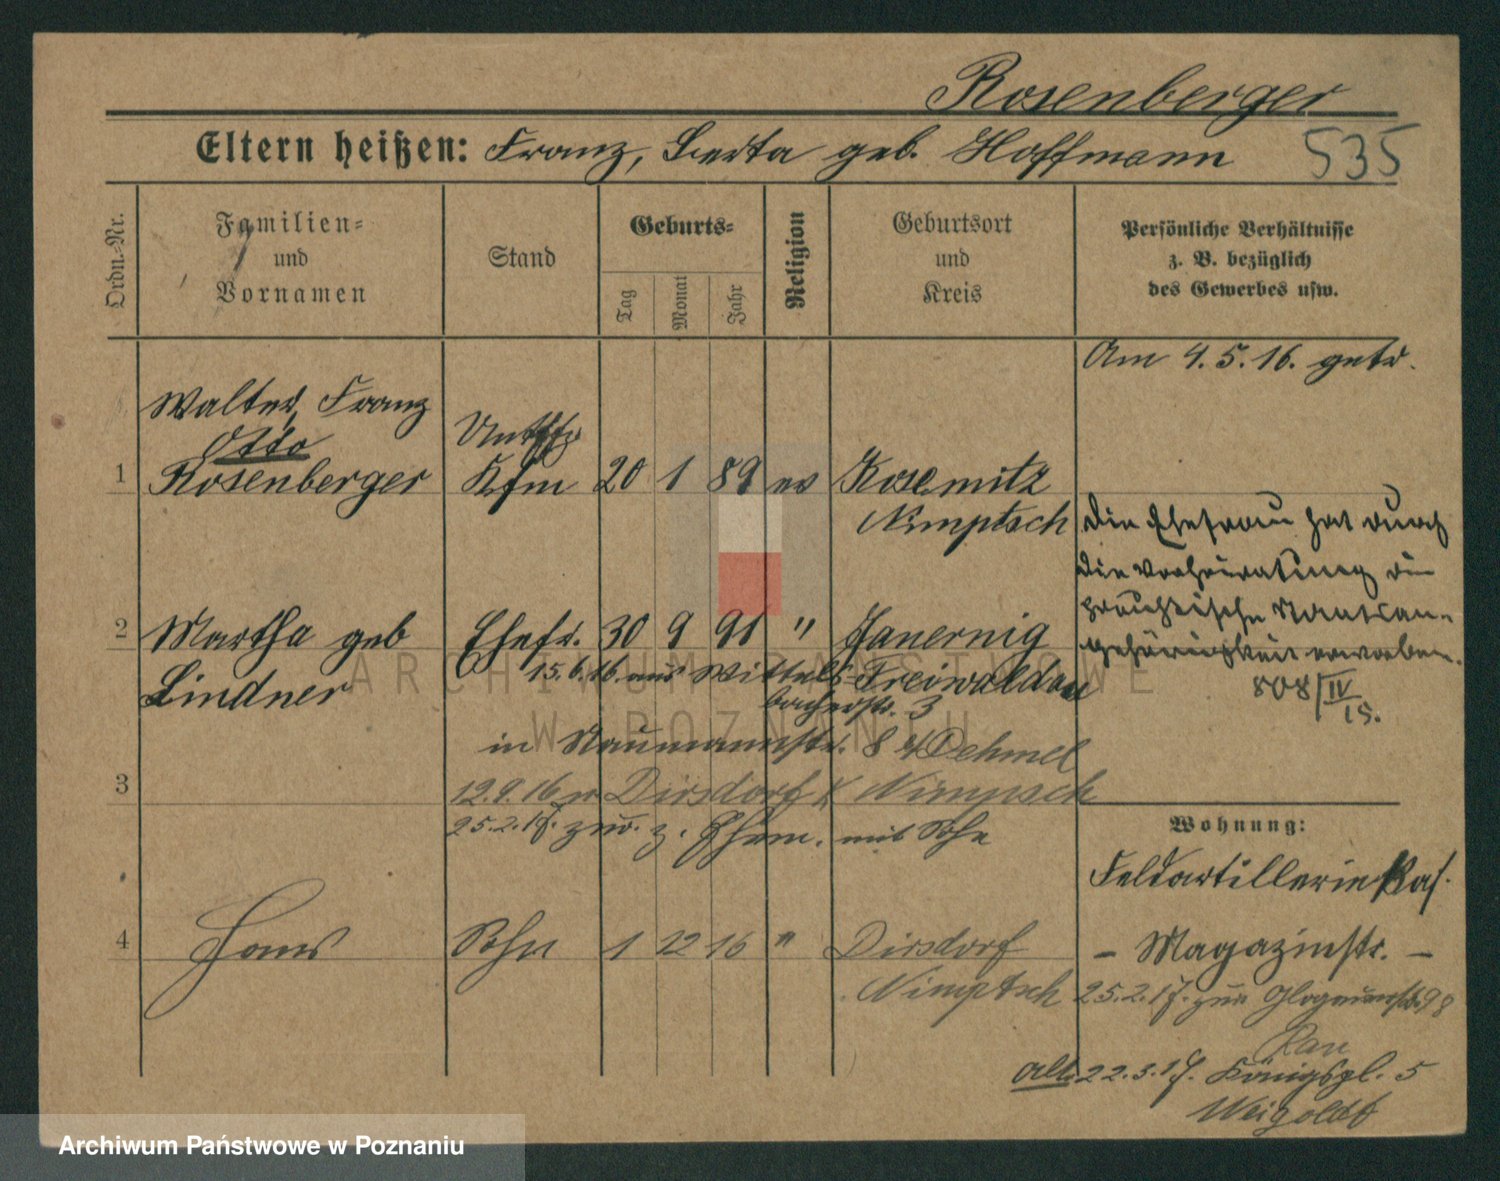 Rosenberger
Eltern heißen: Franz, Berta geb. Hoffmann
535
Ordn.-Nr.
Familien-
und
Vornamen
Stand
Geburts-
Tag
Monat
Jahr
Religion
Geburtsort
und
Kreis
Persönliche Verhältnisse
z. B. bezüglich
des Gewerbes usw.
Am 4.5.16. getr.
Walter, Franz
Otto
1 Rosenberger Kfm 20 1 89 ev Kosemitz
Nimptsch
Die Ehefrau hat durch
die Verheiratung die
preußische Staatsan-
gehörigkeit erworben.
808/IV
15.
2 Martha geb Ehefr. 30 9 91 " Janernig
Lindner
Freiwaldau
15.6.16. aus Wittels-
bacherstr. 3
in Naumannstr. 8 b/ Dehmel
3
12.9.16 n Dirsdorf K Nimpsch
25.2.17. zur. z. Ehem. mit Sohn
4 Hans Sohn 1 12 16 " Dirsdorf
Nimptsch
Wohnung:
Feldartillerie Kas.
- Magazinstr. -
25.2.17. zur Glogauerstr. 98
Rau
22.3.17. Königspl. 5
Weigoldt
ARCHIWUM PAŃSTWOWE
W POZNANIU
Archiwum Państwowe w Poznaniu